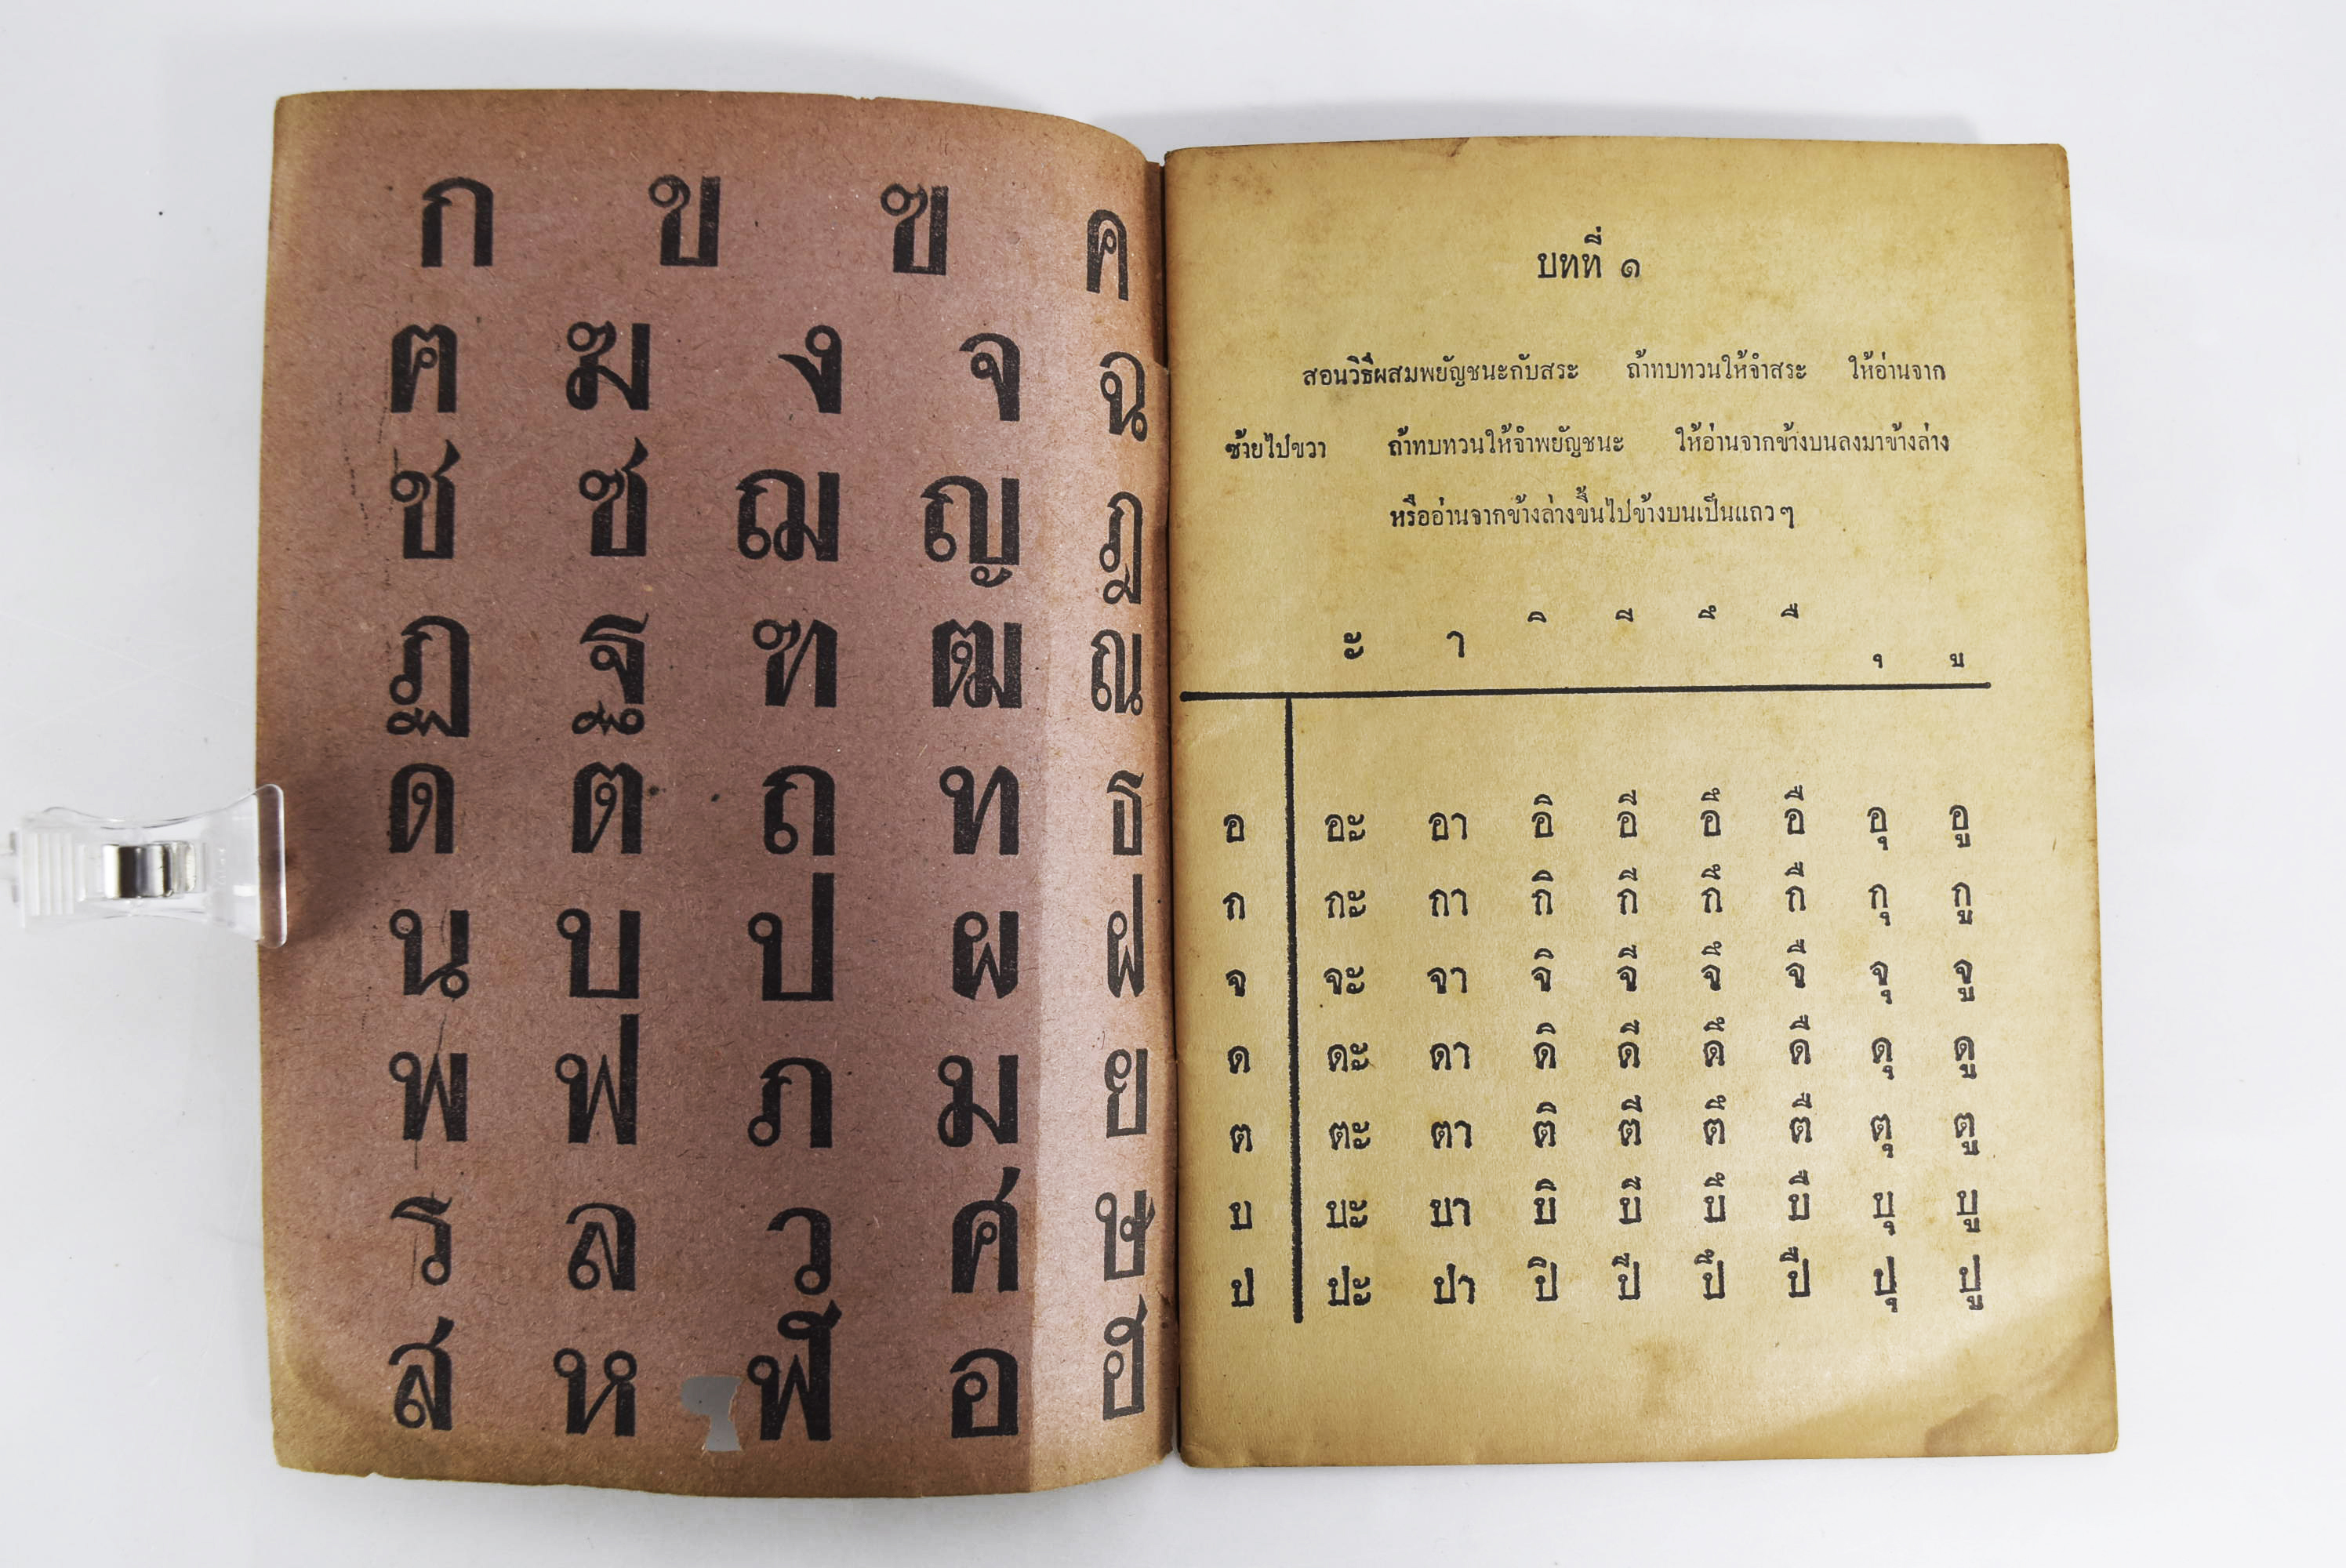 ก ข ฃ ค
ฅ ฆ ง จ ฉ
ช ซ ฌ ญ ฎ
ฏ ฐ ฑ ฒ ณ
ด ต ถ ท ธ
น บ ป ผ ฝ
พ ฟ ภ ม ย
ร ล ว ศ ษ
ส ห ฬ อ ฮ
บทที่ ๑
สอนวิธีผสมพยัญชนะกับสระ ถ้าทบทวนให้จำสระ ให้อ่านจาก
ซ้ายไปขวา ถ้าทบทวนให้จำพยัญชนะ ให้อ่านจากข้างบนลงมาข้างล่าง
หรืออ่านจากข้างล่างขึ้นไปข้างบนเป็นแถว ๆ
ะ า ิ ี ึ ื ุ ู
อ อะ อา อิ อี อึ อื อุ อู
ก กะ กา กิ กี กึ กื กุ กู
จ จะ จา จิ จี จึ จื จุ จู
ด ดะ ดา ดิ ดี ดึ ดื ดุ ดู
ต ตะ ตา ติ ตี ตึ ตื ตุ ตู
บ บะ บา บิ บี บึ บื บุ บู
ป ปะ ปา ปิ ปี ปึ ปื ปุ ปู